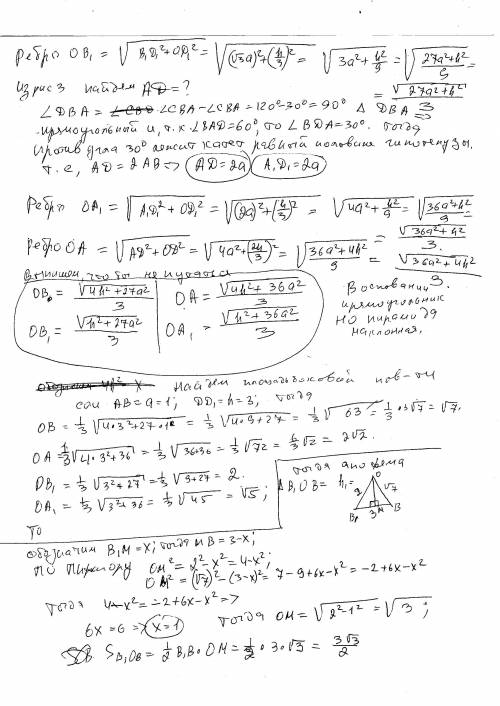 Ребро OB₁ = √(B₁D₁²+OD₁²) = √((√3a)²+(h/3)²) = √(3a²+h²/9) = √((27a²+h²)/9) = √(27a²+h²)/3
Из рис 3 найдем AD = ?
∠DBA = ∠CBA-∠CBA = 120°-30° = 90° Δ DBA ⇒
прямоугольный и, т.к ∠BAD=60°, то ∠BDA=30°. тогда
против угла 30° лежит катет равный половине гипотенузы.
т.е, AD = 2AB ⇒ AD=2a A₁D₁=2a
Ребро OA₁ = √(A₁D₁²+OD₁²) = √((2a)²+(h/3)²) = √(4a²+h²/9) = √((36a²+h²)/9) = √(36a²+h²)/3.
Ребро OA = √(AD²+OD²) = √(4a²+(2h/3)²) = √((36a²+4h²)/9) = √(36a²+4h²)/3.
Выпишем, чтобы не
OB = √(4h²+27a²)/3 OA = √(4h²+36a²)/3
OB₁ = √(h²+27a²)/3 OA₁ = √(h²+36a²)/3
В основании
прямоугольник
но пирамида
наклонная.
Найдем площадь боковой пов-ти
если AB=a=1; DD₁=h=3, тогда
OB = 1/3 √(4·3²+27·1²) = 1/3 √(4·9+27) = 1/3 √63 = 1/3·3√7 = √7.
OA = 1/3 √(4·3²+36) = 1/3 √(36+36) = 1/3 √72 = 6/3 √2 = 2√2.
OB₁ = 1/3 √(3²+27) = 1/3 √(9+27) = 2.
OA₁ = 1/3 √(3²+36) = 1/3 √45 = √5;
тогда апофема
ΔB₁OB = h₁ =
O
2 √7
B₁ 3 M B
То
обозначим B₁M=x; тогда MB=3-x;
по Пифагору OM² = 2²-x² = 4-x²;
OM² = (√7)²-(3-x)² = 7-9+6x-x² = -2+6x-x²
тогда 4-x² = -2+6x-x² ⇒
6x=6 ⇒ x=1 тогда OM = √(2²-1²) = √3;
S B₁OB = 1/2 B₁B·OM = 1/2·3·√3 = 3√3/2